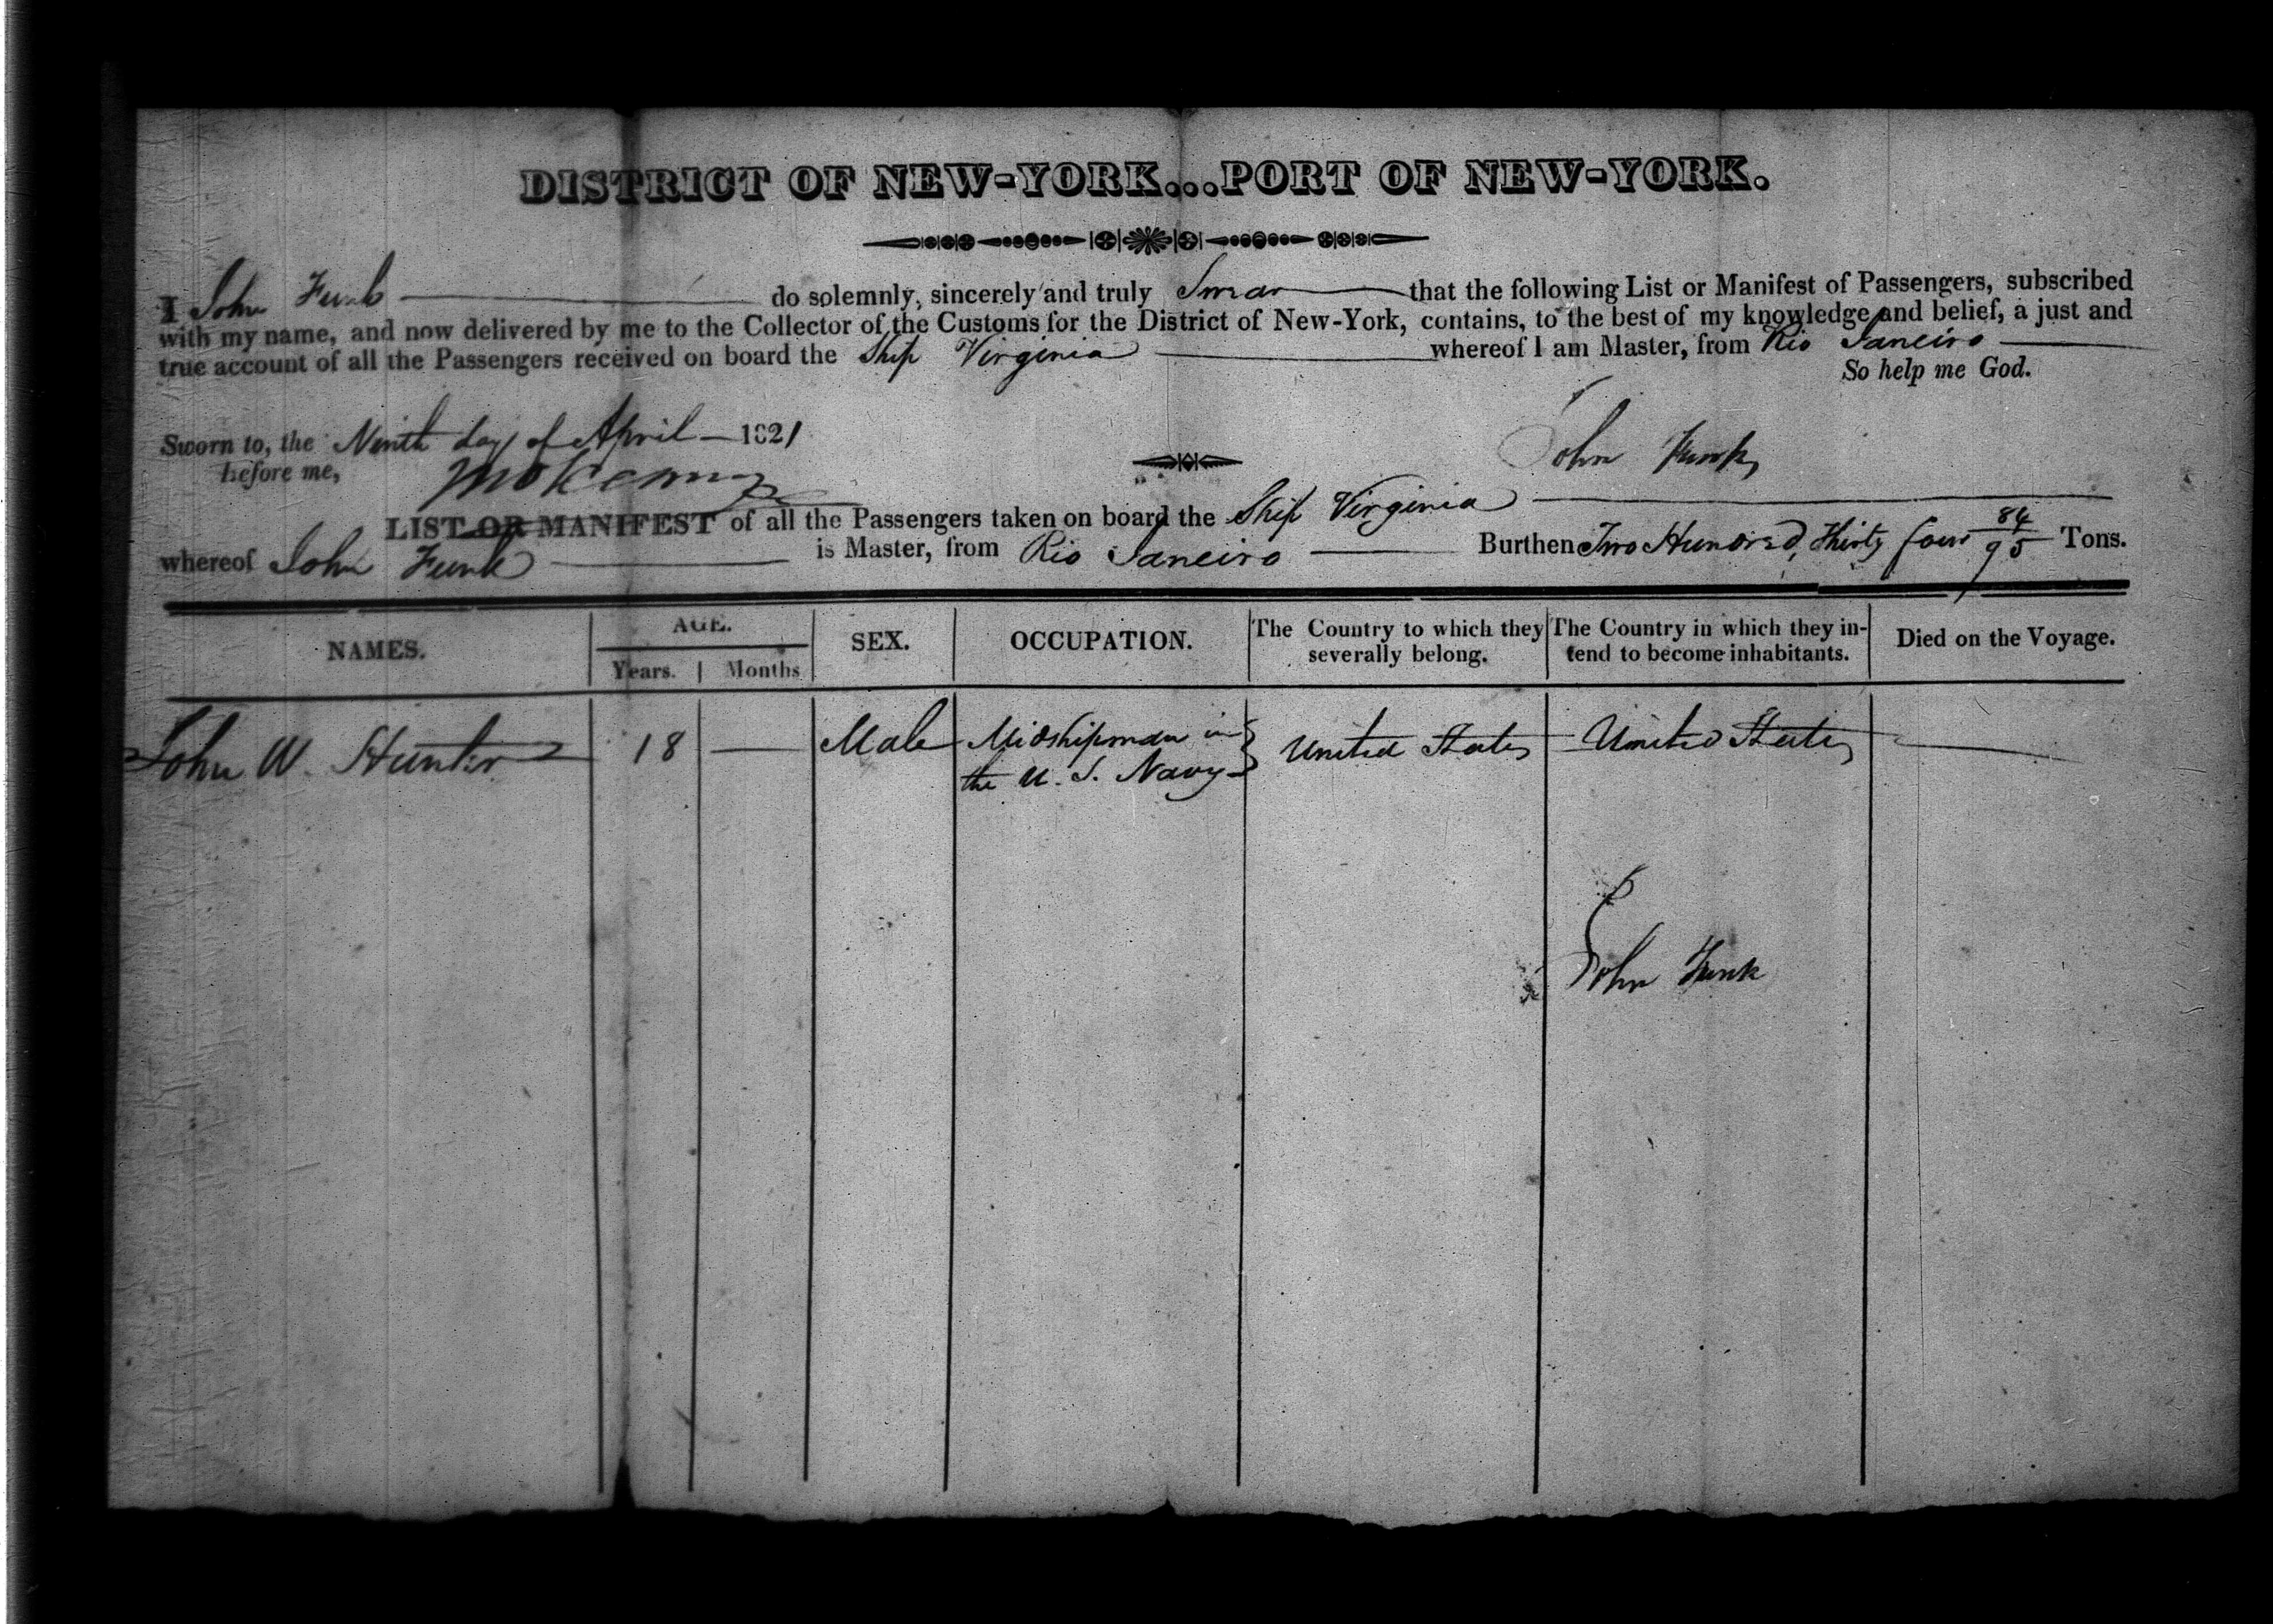 DISTRICT OF NEW-YORK...PORT OF NEW-YORK.
I John Funk do solemnly, sincerely and truly Swear that the following List or Manifest of Passengers, subscribed
with my name, and now delivered by me to the Collector of the Customs for the District of New-York, contains, to the best of my knowledge and belief, a just and
true account of all the Passengers received on board the Ship Virginia whereof I am Master, from Rio Janeiro
So help me God.
Sworn to, the Ninth day of April 1821
before me,
John Funk
LIST OR MANIFEST of all the Passengers taken on board the Ship Virginia
whereof John Funk is Master, from Rio Janeiro Burthen Two Hundred, Thirty four 84/95 Tons.
NAMES. AGE. SEX. OCCUPATION. The Country to which they severally belong. The Country in which they intend to become inhabitants. Died on the Voyage.
Years. Months
John W. Hunter 18 — Male Midshipman in United States United States —
the U. S. Navy
John Funk